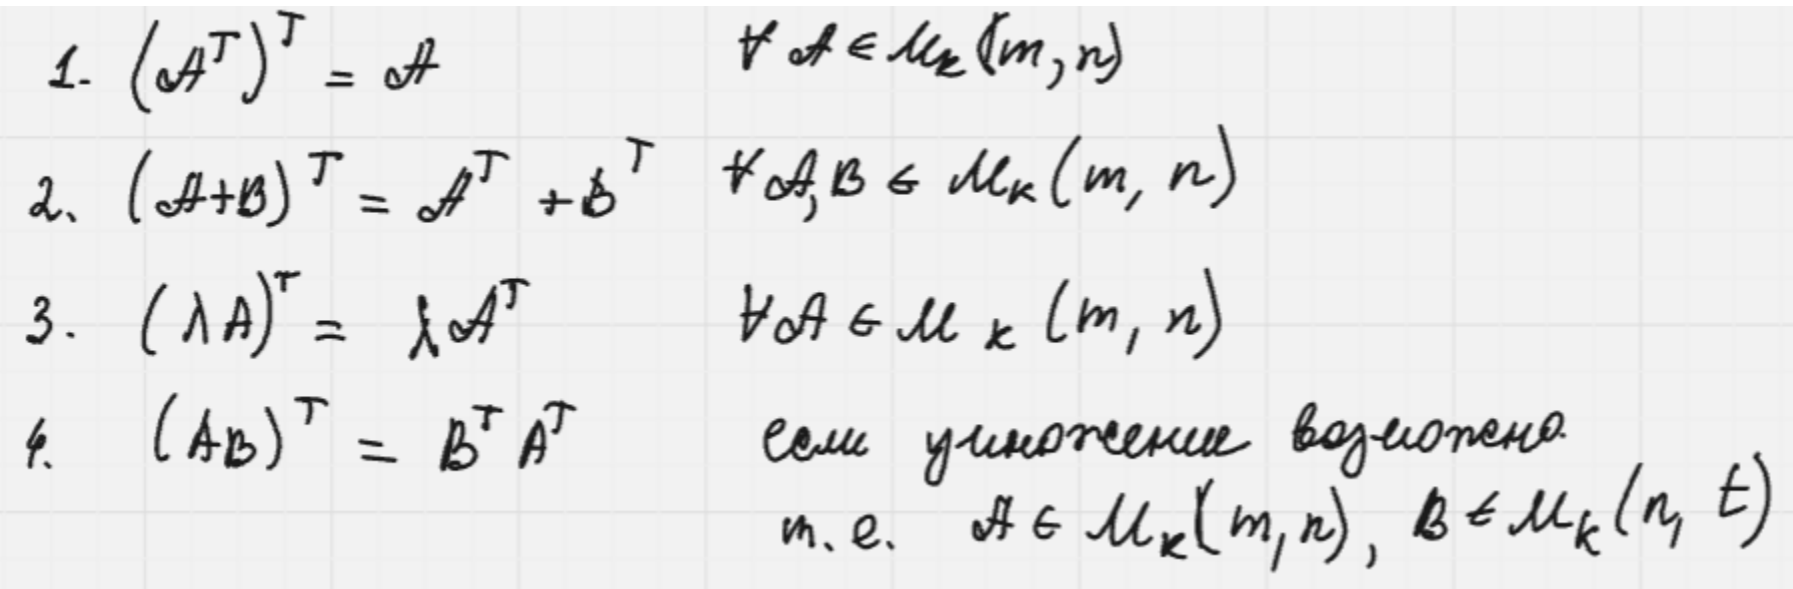 1. (Aᵀ)ᵀ = A ∀ A ∈ Mₖ(m, n)
2. (A+B)ᵀ = Aᵀ + Bᵀ ∀ A, B ∈ Mₖ(m, n)
3. (λA)ᵀ = λAᵀ ∀ A ∈ Mₖ(m, n)
4. (AB)ᵀ = BᵀAᵀ если умножение возможно
т.е. A ∈ Mₖ(m, n), B ∈ Mₖ(n, t)